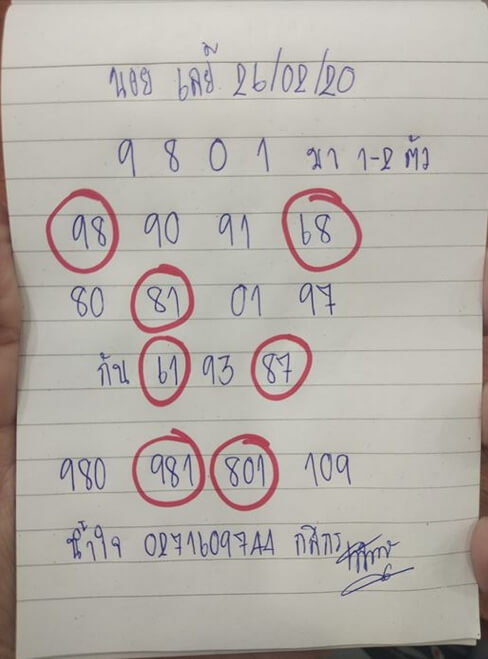 นอย เลยี 26/02/20
9 8 0 1 มา 1-2 ตัว
98 90 91 68
80 81 01 97
กัน 61 93 87
980 981 801 109
น้ำใจ 0271609744 กสิกร